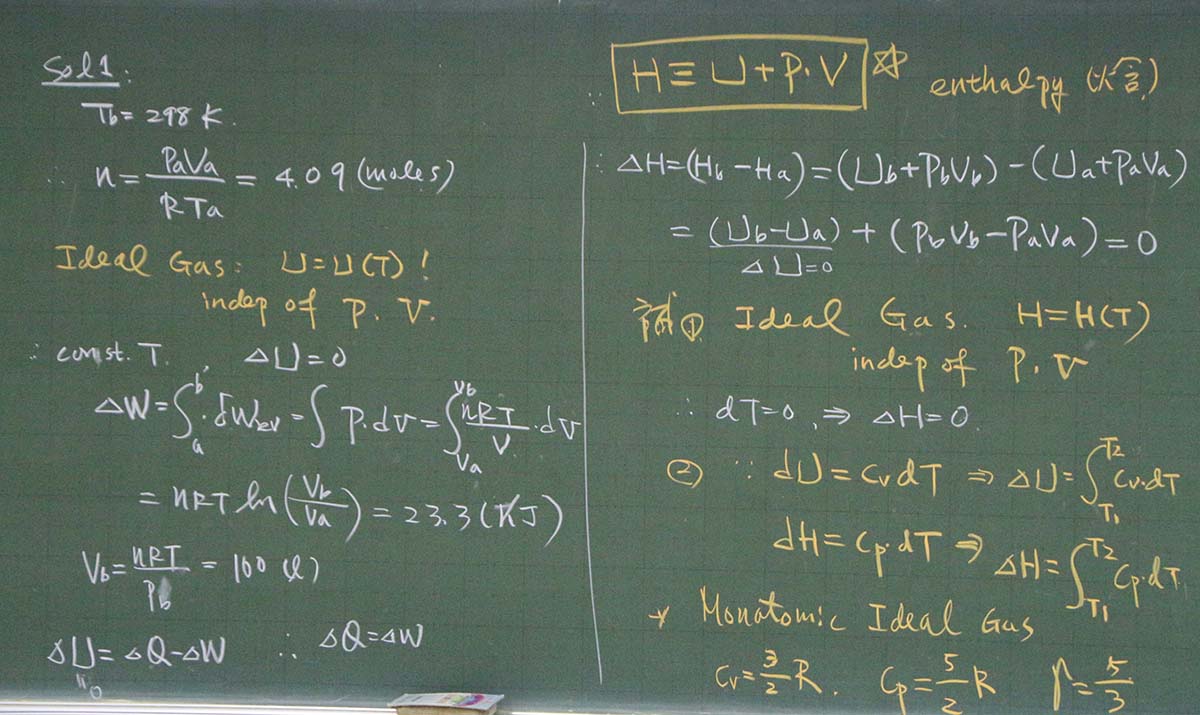 Sol 1:
Tb = 298 K.
∴ n = PaVa / RTa = 4.09 (moles)
Ideal Gas: U = U(T)!
indep of P. V.
∴ const. T. ΔU = 0
ΔW = ∫_a^b δWrev = ∫ P·dV = ∫_Va^Vb nRT/V · dV
= nRT ln(Vb/Va) = 23.3 (KJ)
Vb = nRT/Pb = 100 (l)
ΔU = ΔQ - ΔW ∴ ΔQ = ΔW
"0
H ≡ U + P·V ☆ enthalpy (焓)
∴ ΔH = (Hb - Ha) = (Ub + PbVb) - (Ua + PaVa)
= (Ub - Ua) + (PbVb - PaVa) = 0
ΔU = 0
① Ideal Gas. H = H(T)
indep of P. V
∴ dT = 0, ⇒ ΔH = 0.
② ∵ dU = CvdT ⇒ ΔU = ∫_T1^T2 Cv·dT
dH = Cp·dT ⇒ ΔH = ∫_T1^T2 Cp·dT
* Monatomic Ideal Gas
Cv = 3/2 R. Cp = 5/2 R γ = 5/3